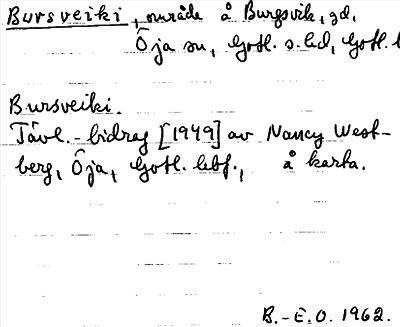 Bursveiki, område å Burgsvik, gd.
Öja sn, Gotl. s. hd, Gotl. l
Bursveiki.
Tävl.-bidrag [1949] av Nancy West-
berg, Öja, Gotl. hbf., å karta.
B.-E.O. 1962.